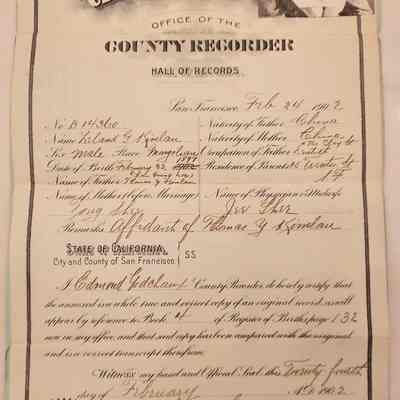 OFFICE OF THE
COUNTY RECORDER
HALL OF RECORDS
San Francisco, Feb 24 1902
No B 14360 Nativity of Father China
Name Leland G Kimlau Nativity of Mother China
Sex Male Race Mongolian Occupation of Father
Date of Birth February 22 1899 Residence of Parents
Name of Father Thomas Y Kimlau S F
Name of Mother (before Marriage) Name of Physician or Midwife
Tong Shee Jee Shee
Remarks Affidavit of Thomas Y Kimlau
STATE OF CALIFORNIA,
City and County of San Francisco SS
I Edmond Godchaux County Recorder, do hereby certify that
the annexed is a whole, true and correct copy of an original record, as will
appear by reference to Book 4 of Register of Births, page 132
now in my office, and that said copy has been compared with the original
and is a correct transcript therefrom.
Witness my hand and Official Seal, this Twenty fourth
day of February A.D. 1902